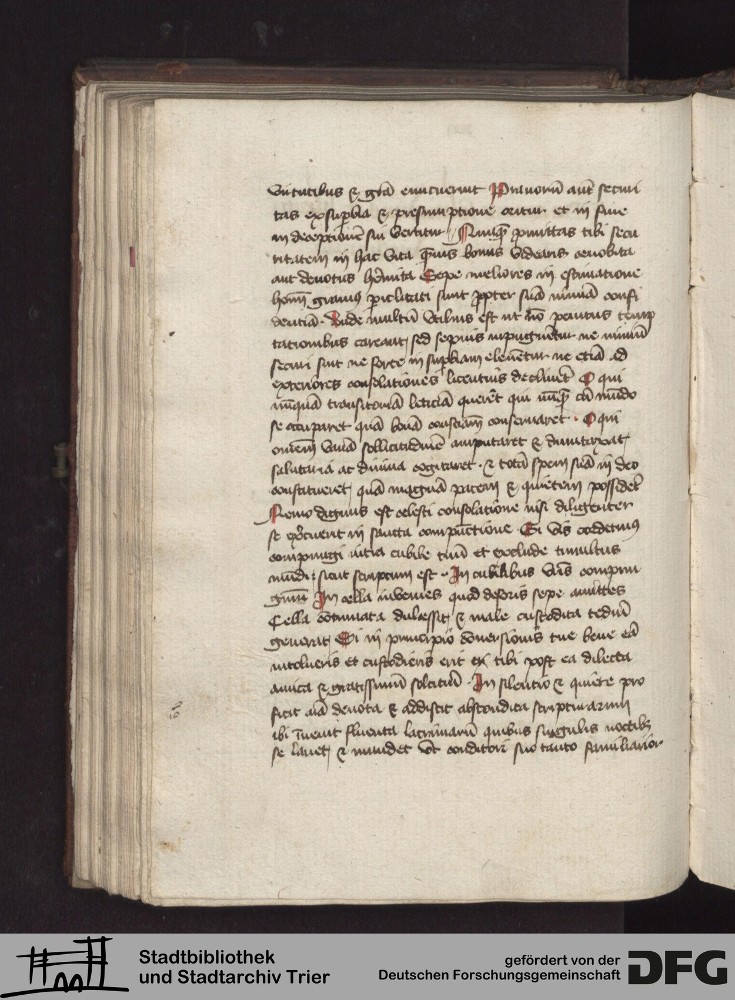 virtutibus & grā emicuerint Prauorū aūt securi
tas ex supbia & presumptione oritur et in fine
in deceptionē sui vertitur Nunqȝ promittas tibi secu
ritatem in hac vita qȝuis bonus videaris cenobita
aut deuotus hēmita Sepe meliores in estimatione
homī grauius piclitati sunt propter suā nimiā confi
dentiā Unde multis vtilius est ut nō penitus temp
tationibus careant sed sepius inpugnētur ne nimiū
securi sint ne forte in supbiam eleuētur ne etiā ad
exteriores consolationes licentius declinēt O qui
nunquā transitoriā leticiā quereret qui nunqȝ cū mundo
se occuparet quā bonā conscīam conseruaret O qui
omnem vanā sollicitudinē amputaret & dumtaxat
salutaria ac diuina cogitaret & totā spem suā in deo
constitueret quā magnā pacem & quietem possideret
Nemo dignus est celesti consolatione nisi diligenter
se exercuerit in sancta compunctione Si vis cordetenus
compungi intra cubile tuū et exclude tumultus
mundi sicut scriptum est In cubilibus vris compun
gimī In cella inuenies quod deforis sepe amittes
Cella continuata dulcessit & male custodita tediū
generat Si in principio conuersionis tue bene eā
incolueris et custodieris erit tibi post ea dilecta
amica & gratissimū solaciū In silentio & quiete pro
ficit aīa deuota & addiscit abscondita scripturarum
ibi īuenit fluenta lacrimarū quibus singulis noctibȝ
se lauet & mundet vt conditori suo tanto familiarior
Stadtbibliothek
und Stadtarchiv Trier
gefördert von der
Deutschen Forschungsgemeinschaft
DFG